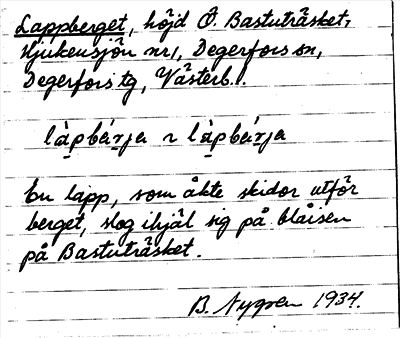 Lappberget, höjd Ö. Bastuträsket,
Hjukensjön nr 1, Degerfors sn,
Degerfors tg, Västerb. l.
làpbárja ~ làpbárja
En lapp, som åkte skidor utför
berget, slog ihjäl sig på blåisen
på Bastuträsket.
B. Nygren 1934.